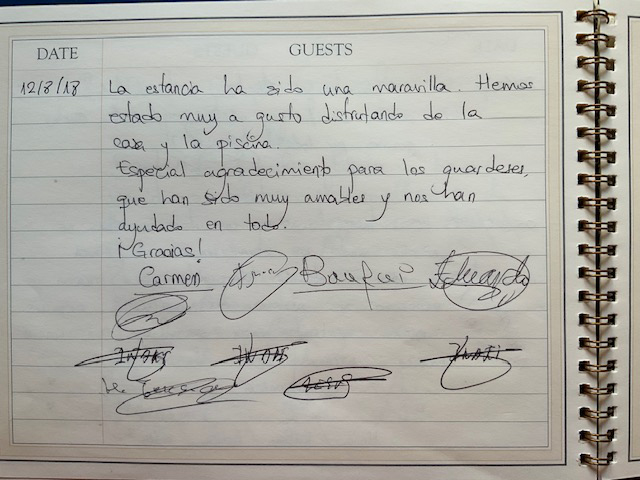 DATE GUESTS
12/8/18 La estancia ha sido una maravilla. Hemos
estado muy a gusto disfrutando de la
casa y la piscina.
Especial agradecimiento para los guardeses,
que han sido muy amables y nos han
ayudado en todo.
¡Gracias!
Carmen Eduardo